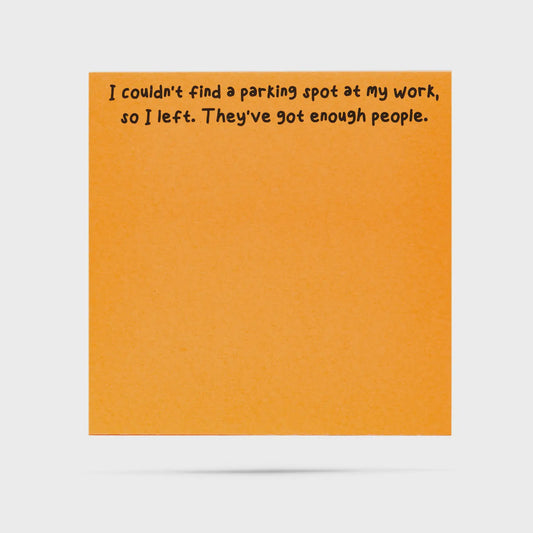 I couldn't find a parking spot at my work,
so I left. They've got enough people.